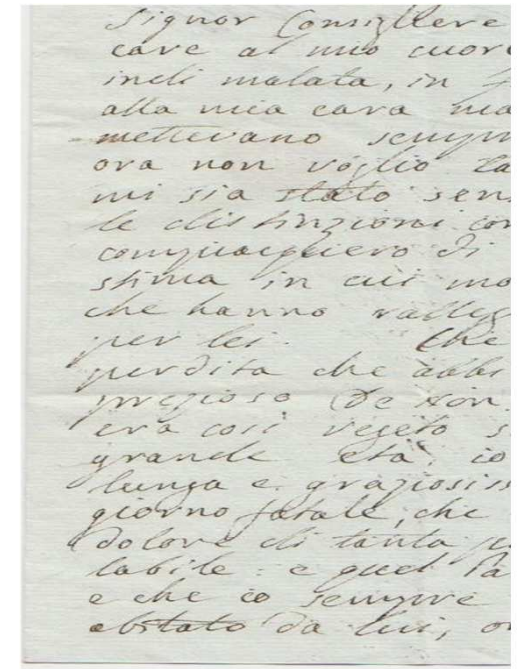 Signor Consigliere
care al mio cuor
indi malata, in
alla mia cara ma
mettevano semp
ora non voglio ta
mi sia stato sen
le distinzioni con
compiacquero di
stima in cui mo
che hanno ralleg
per lei. Che
perdita che abbi
prezioso De Non.
era così vegeto s
grande età, io
lunga e graziosiss
giorno fatale, che
dolore di tanta p
labile: e quel Pa
e che io sempre
abitato da lui, o